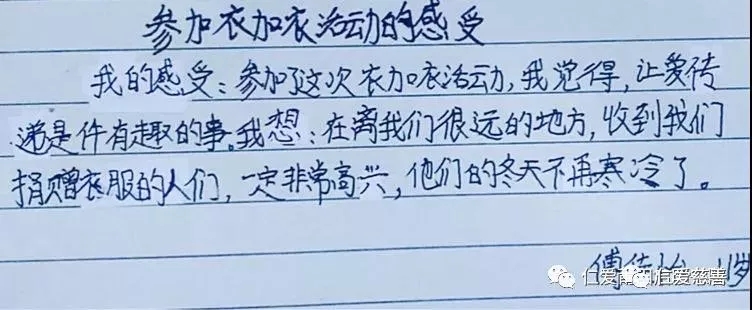 参加衣加衣活动的感受
我的感受：参加了这次衣加衣活动，我觉得，让爱传
递是件有趣的事。我想：在离我们很远的地方，收到我们
捐赠衣服的人们，一定非常高兴，他们的冬天不再寒冷了。
傅 11岁
仁爱 信爱慈善